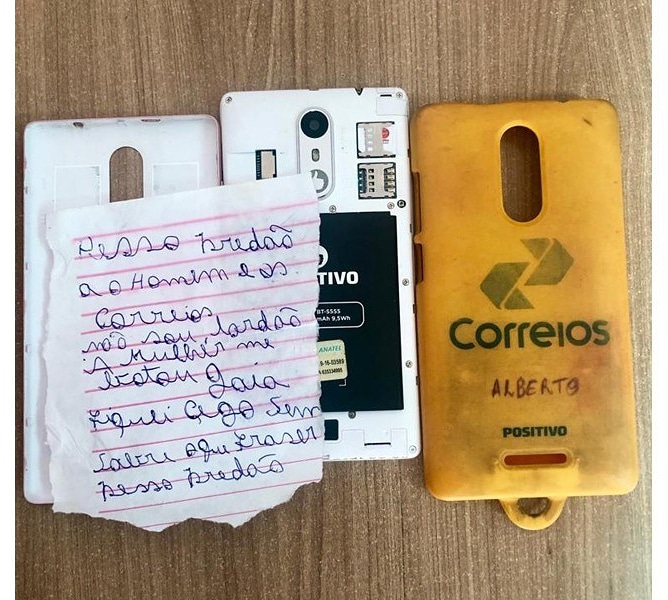 Pesso Predão
ao Homem e os
Correios
não sou lardão
A Mulhir me
botou Gaia
Fiquei Cego Sem
Sabre o qu Fraser
pesso predão
ITIVO
BT-S555
mAh 9,5Wh
ANATEL
Correios
ALBERTO
POSITIVO